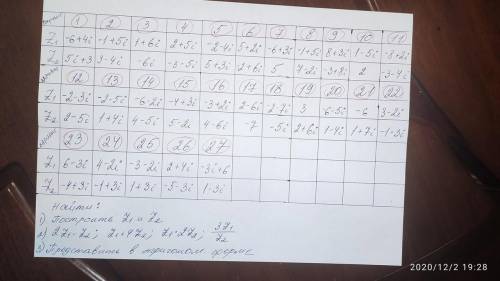 1 2 3 4 5 6 7 8 9 10 11
Z₁ -6+4i -1+5i 1+6i 2+5i -2-4i 5+2i -6+3i -1+5i 8+3i 1-5i -8+2i
Z₂ 5i+3 3-4i -6i -3-5i 5+3i 2+6i 5 4-2i -3+8i 2 -3-4i
12 13 14 15 16 17 18 19 20 21 22
Z₁ -2-3i -2-5i 6-2i -4+3i -3+2i 2-6i 2-7i 3 6-5i -6 3-2i
Z₂ 2-5i 1+4i 4-5i 5-2i 4-6i -7 -5i 2+6i 1-4i 1+7i -1-3i
23 24 25 26 27
Z₁ 6-3i 4-2i -3-2i 2+4i -3i+6
Z₂ -4+3i -1+3i 1+3i -5-3i 1-3i
Найти:
1) Построить Z₁ и Z₂
2) 2Z₁-Z₂; Z₁+4Z₂; Z₁·2Z₂; 3Z₁/Z₂
3) Представить в тригоном форме
2020/12/2 19:28